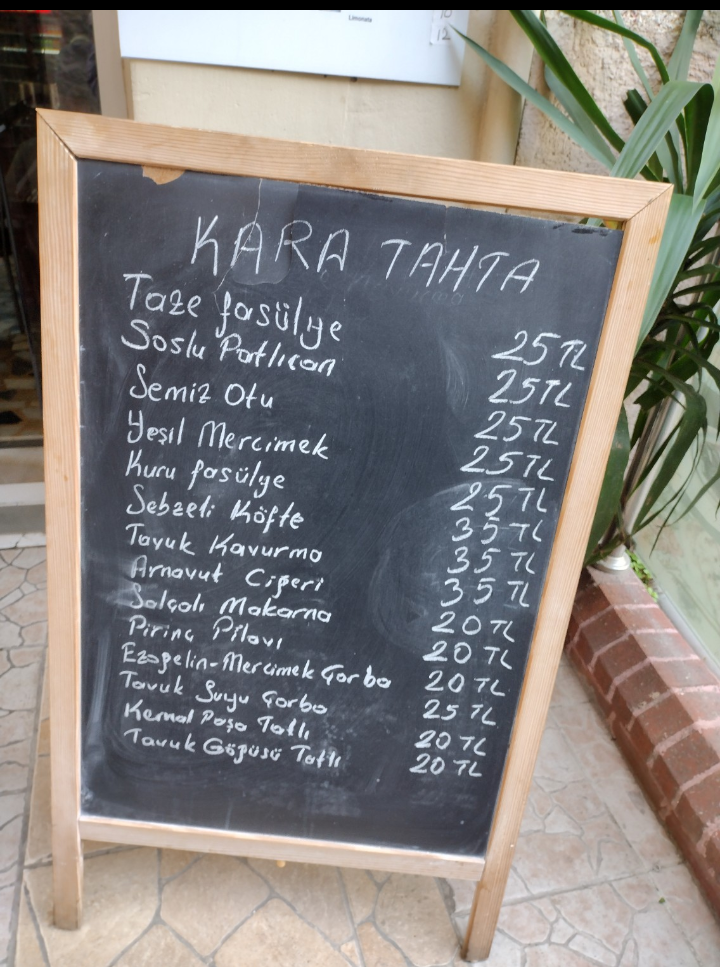 Limonata
12
KARA TAHTA
Taze fasülye 25 TL
Soslu Patlıcan 25 TL
Semiz Otu 25 TL
Yeşil Mercimek 25 TL
Kuru fasülye 25 TL
Sebzeli Köfte 35 TL
Tavuk Kavurma 35 TL
Arnavut Ciğeri 35 TL
Salçalı Makarna 20 TL
Pirinç Pilavı 20 TL
Ezogelin-Mercimek Çorba 20 TL
Tavuk Suyu Çorba 25 TL
Kemal Paşa Tatlı 20 TL
Tavuk Göğüsü Tatlı 20 TL